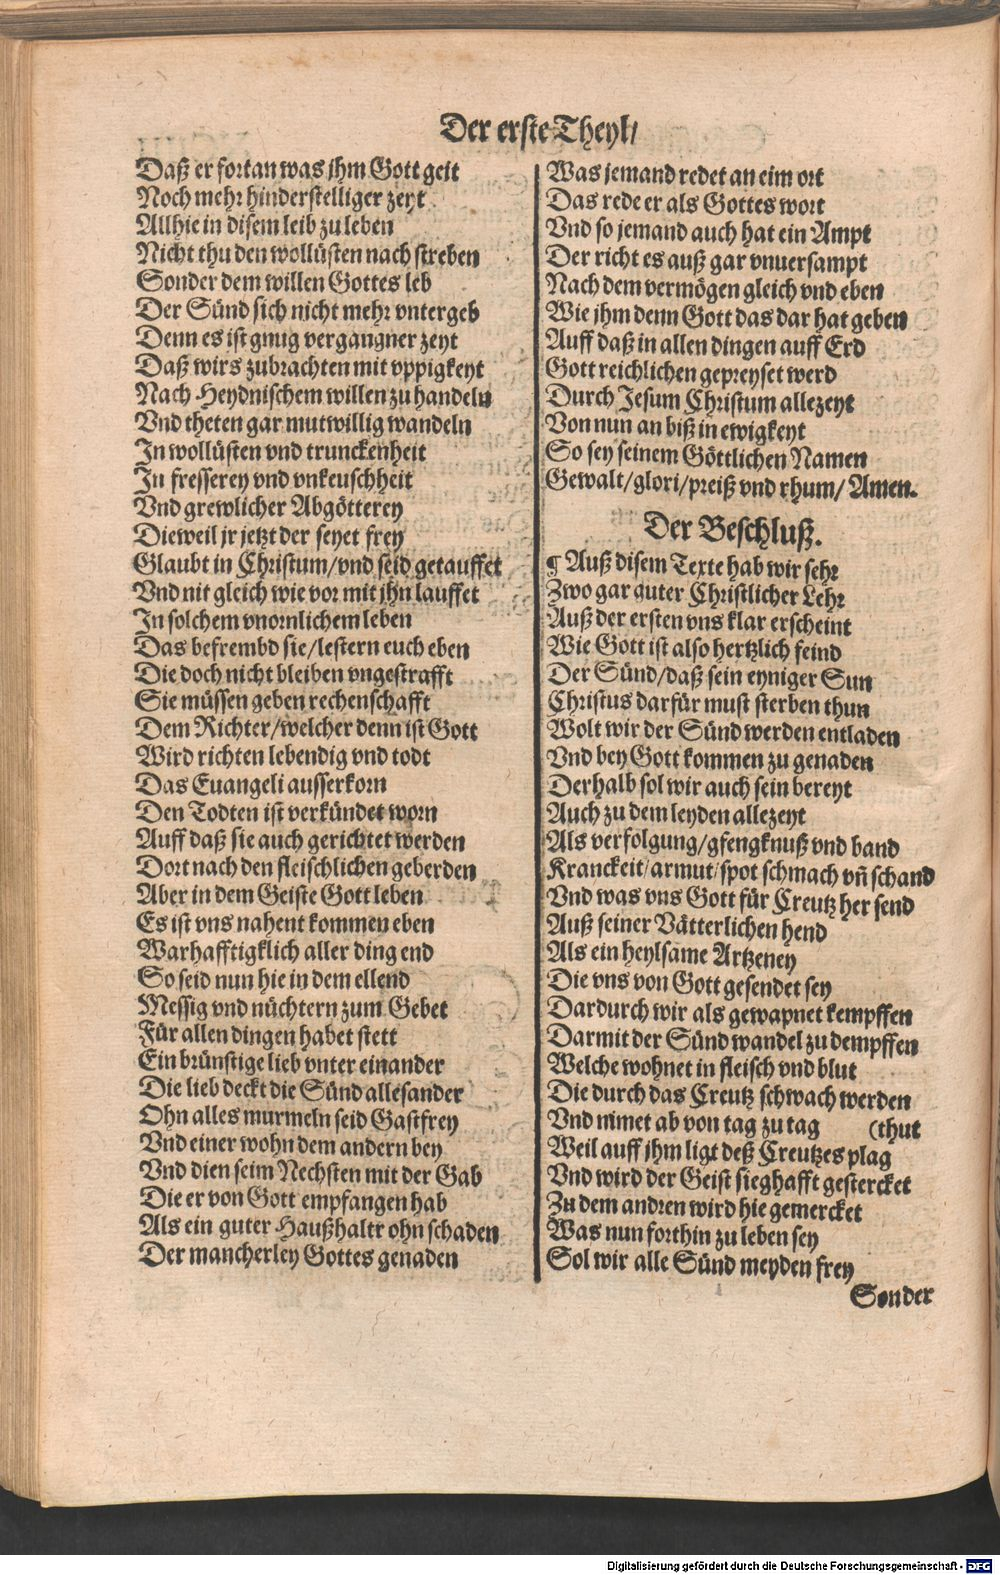 Der erste Theyl/
Daß er fortan was jhm Gott geit
Noch mehr hinderstelliger zeyt
Allhie in disem leib zu leben
Nicht thu den wollüsten nach streben
Sonder dem willen Gottes leb
Der Sünd sich nicht mehr vntergeb
Denn es ist gnug vergangner zeyt
Daß wirs zubrachten mit vppigkeyt
Nach Heydnischem willen zu handeln
Vnd theten gar mutwillig wandeln
In wollüsten vnd trunckenheit
In fresserey vnd vnkeuschheit
Vnd grewlicher Abgötterey
Dieweil jr jetzt der seyet frey
Glaubt in Christum/vnd seid getauffet
Vnd nit gleich wie vor mit jhn lauffet
In solchem vnornlichem leben
Das befrembd sie/lestern euch eben
Die doch nicht bleiben vngestrafft
Sie müssen geben rechenschafft
Dem Richter/welcher denn ist Gott
Wird richten lebendig vnd todt
Das Euangeli ausserkorn
Den Todten ist verkündet worn
Auff daß sie auch gerichtet werden
Dort nach den fleischlichen geberden
Aber in dem Geiste Gott leben
Es ist vns nahent kommen eben
Warhafftigklich aller ding end
So seid nun hie in dem ellend
Messig vnd nüchtern zum Gebet
Für allen dingen habet stett
Ein brünstige lieb vnter einander
Die lieb deckt die Sünd allesander
Ohn alles murmeln seid Gastfrey
Vnd einer wohn dem andern bey
Vnd dien seim Nechsten mit der Gab
Die er von Gott empfangen hab
Als ein guter Haußhaltr ohn schaden
Der mancherley Gottes genaden
Was jemand redet an eim ort
Das rede er als Gottes wort
Vnd so jemand auch hat ein Ampt
Der richt es auß gar vnuersampt
Nach dem vermögen gleich vnd eben
Wie jhm denn Gott das dar hat geben
Auff daß in allen dingen auff Erd
Gott reichlichen gepreyset werd
Durch Jesum Christum allezeyt
Von nun an biß in ewigkeyt
So sey seinem Göttlichen Namen
Gewalt/glori/preiß vnd rhum/ Amen.
Der Beschluß.
¶ Auß disem Texte hab wir sehr
Zwo gar guter Christlicher Lehr
Auß der ersten vns klar erscheint
Wie Gott ist also hertzlich feind
Der Sünd/daß sein eyniger Sun
Christus darfür must sterben thun
Wolt wir der Sünd werden entladen
Vnd bey Gott kommen zu genaden
Derhalb sol wir auch sein bereyt
Auch zu dem leyden allezeyt
Als verfolgung/gfengknuß vnd band
Kranckeit/armut/spot schmach vñ schand
Vnd was vns Gott für Creutz her send
Auß seiner Vätterlichen hend
Als ein heylsame Artzeney
Die vns von Gott gesendet sey
Dardurch wir als gewapnet kempffen
Darmit der Sünd wandel zu dempffen
Welche wohnet in fleisch vnd blut
Die durch das Creutz schwach werden
Vnd nimet ab von tag zu tag (thut
Weil auff jhm ligt deß Creutzes plag
Vnd wird der Geist sieghafft gestercket
Zu dem andren wird hie gemercket
Was nun forthin zu leben sey
Sol wir alle Sünd meyden frey
Sonder
Digitalisierung gefördert durch die Deutsche Forschungsgemeinschaft - DFG